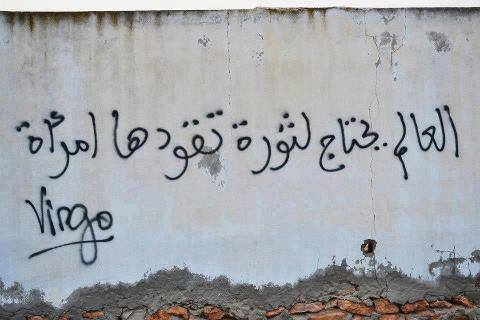 العالم.. يحتاج لثورة تقودها امرأة
Virgo